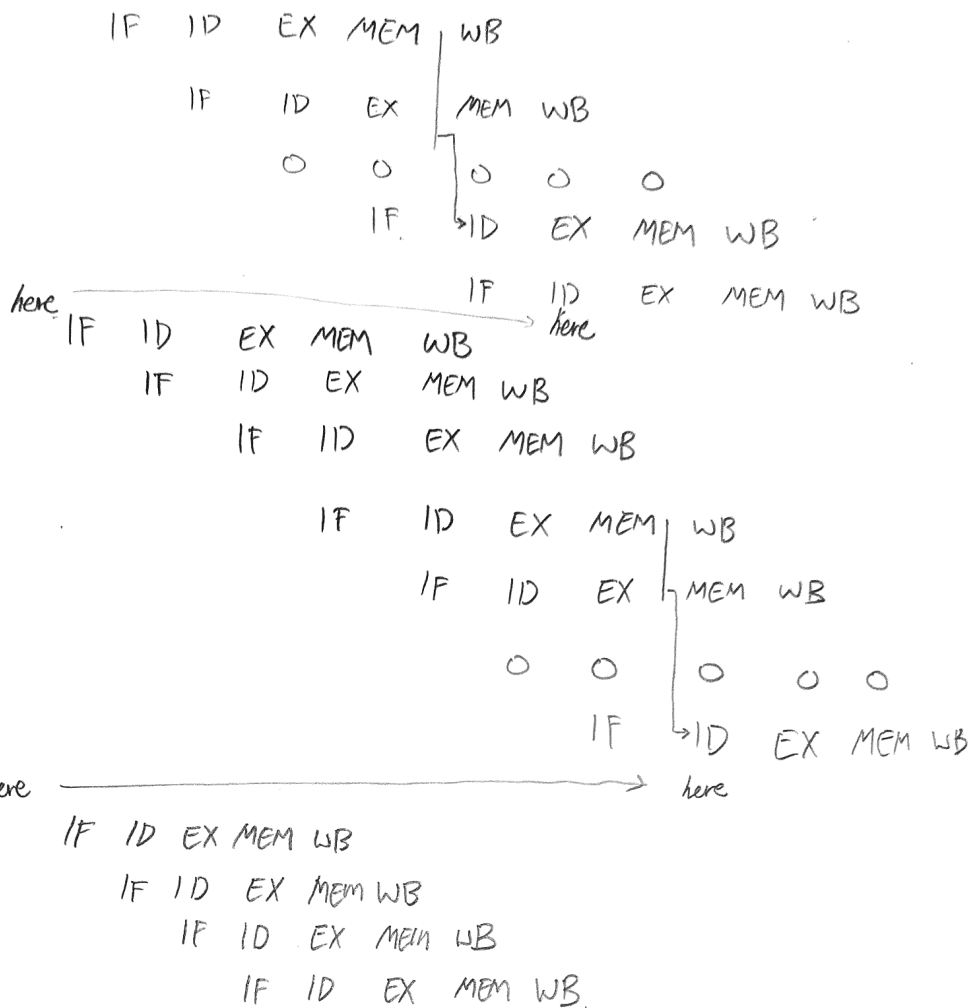 IF ID EX MEM WB
IF ID EX MEM WB
O O O O O
IF ID EX MEM WB
IF ID EX MEM WB
here here
IF ID EX MEM WB
IF ID EX MEM WB
IF ID EX MEM WB
IF ID EX MEM WB
IF ID EX MEM WB
O O O O O
IF ID EX MEM WB
ere here
IF ID EX MEM WB
IF ID EX MEM WB
IF ID EX MEM WB
IF ID EX MEM WB